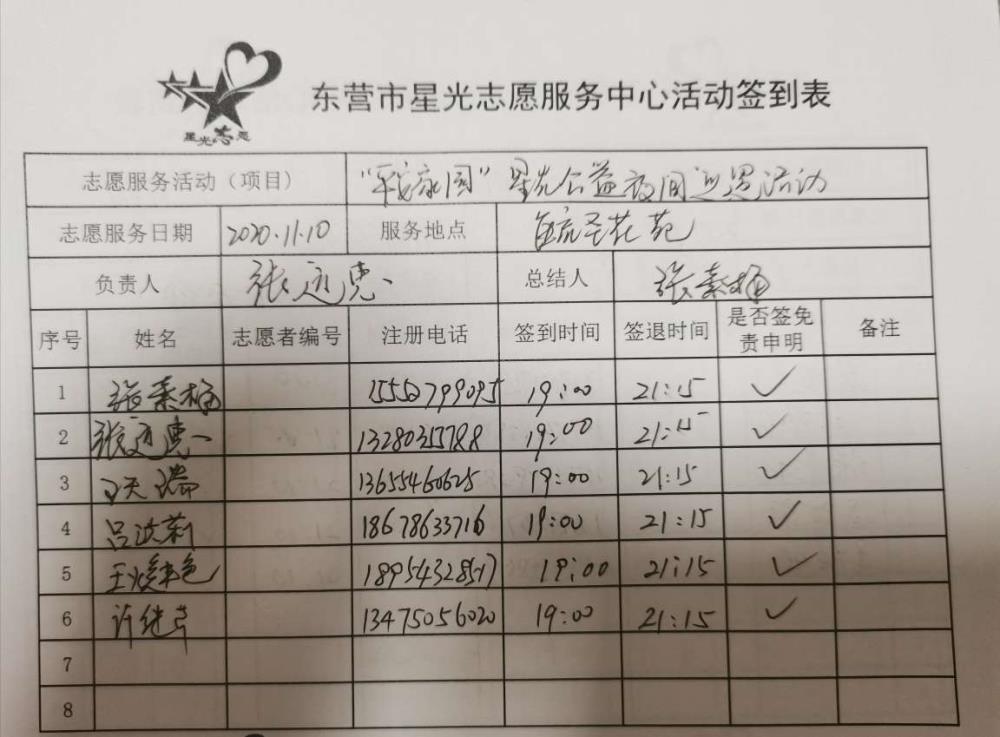 星光志愿
东营市星光志愿服务中心活动签到表
志愿服务活动（项目） "平安家园"星光公益夜间巡逻活动
志愿服务日期 2020.11.10 服务地点 圣花苑
负责人 张 总结人 张素梅
序号 姓名 志愿者编号 注册电话 签到时间 签退时间 是否签免责申明 备注
1 张素梅 19:00 21:15 ✓
2 张 13280315788 19:00 21:15 ✓
3 天瑞 13655460625 19:00 21:15 ✓
4 吕洪莉 18678633716 19:00 21:15 ✓
5 王 18954328517 19:00 21:15 ✓
6 许继 13475056020 19:00 21:15 ✓
7
8